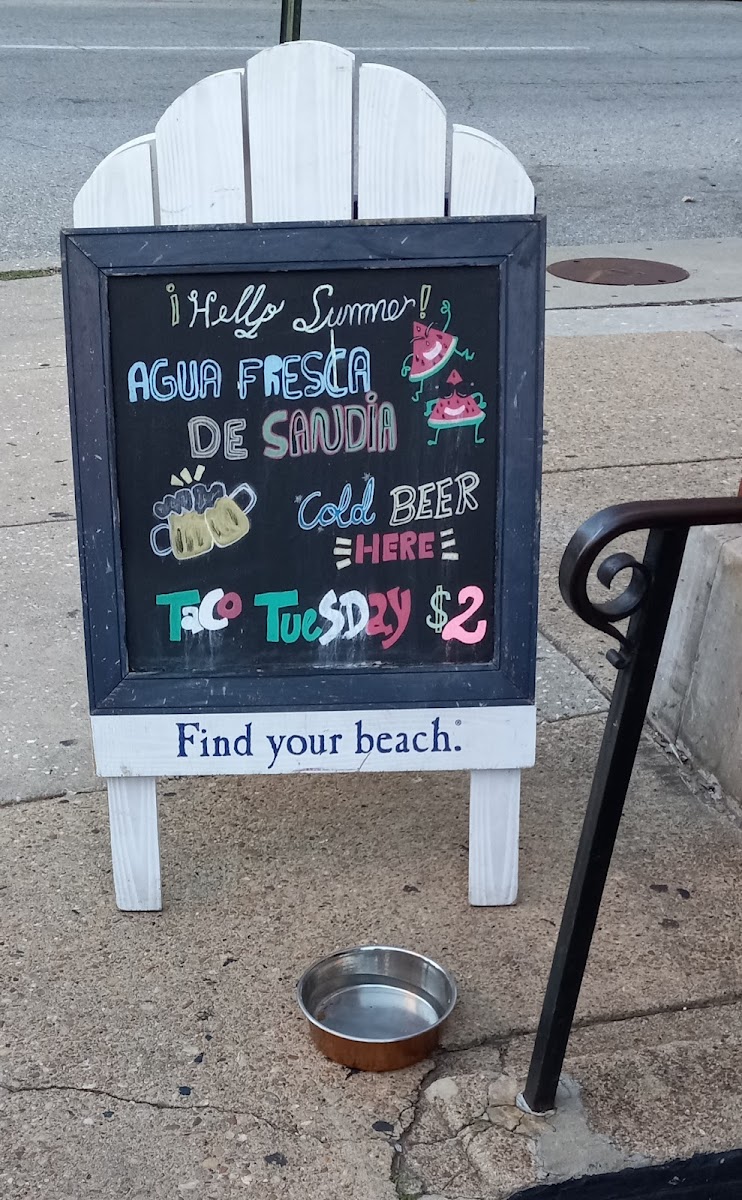 ¡Hello Summer!
AGUA FRESCA
DE SANDIA
Cold BEER
HERE
TaCo TueSDay $2
Find your beach.®